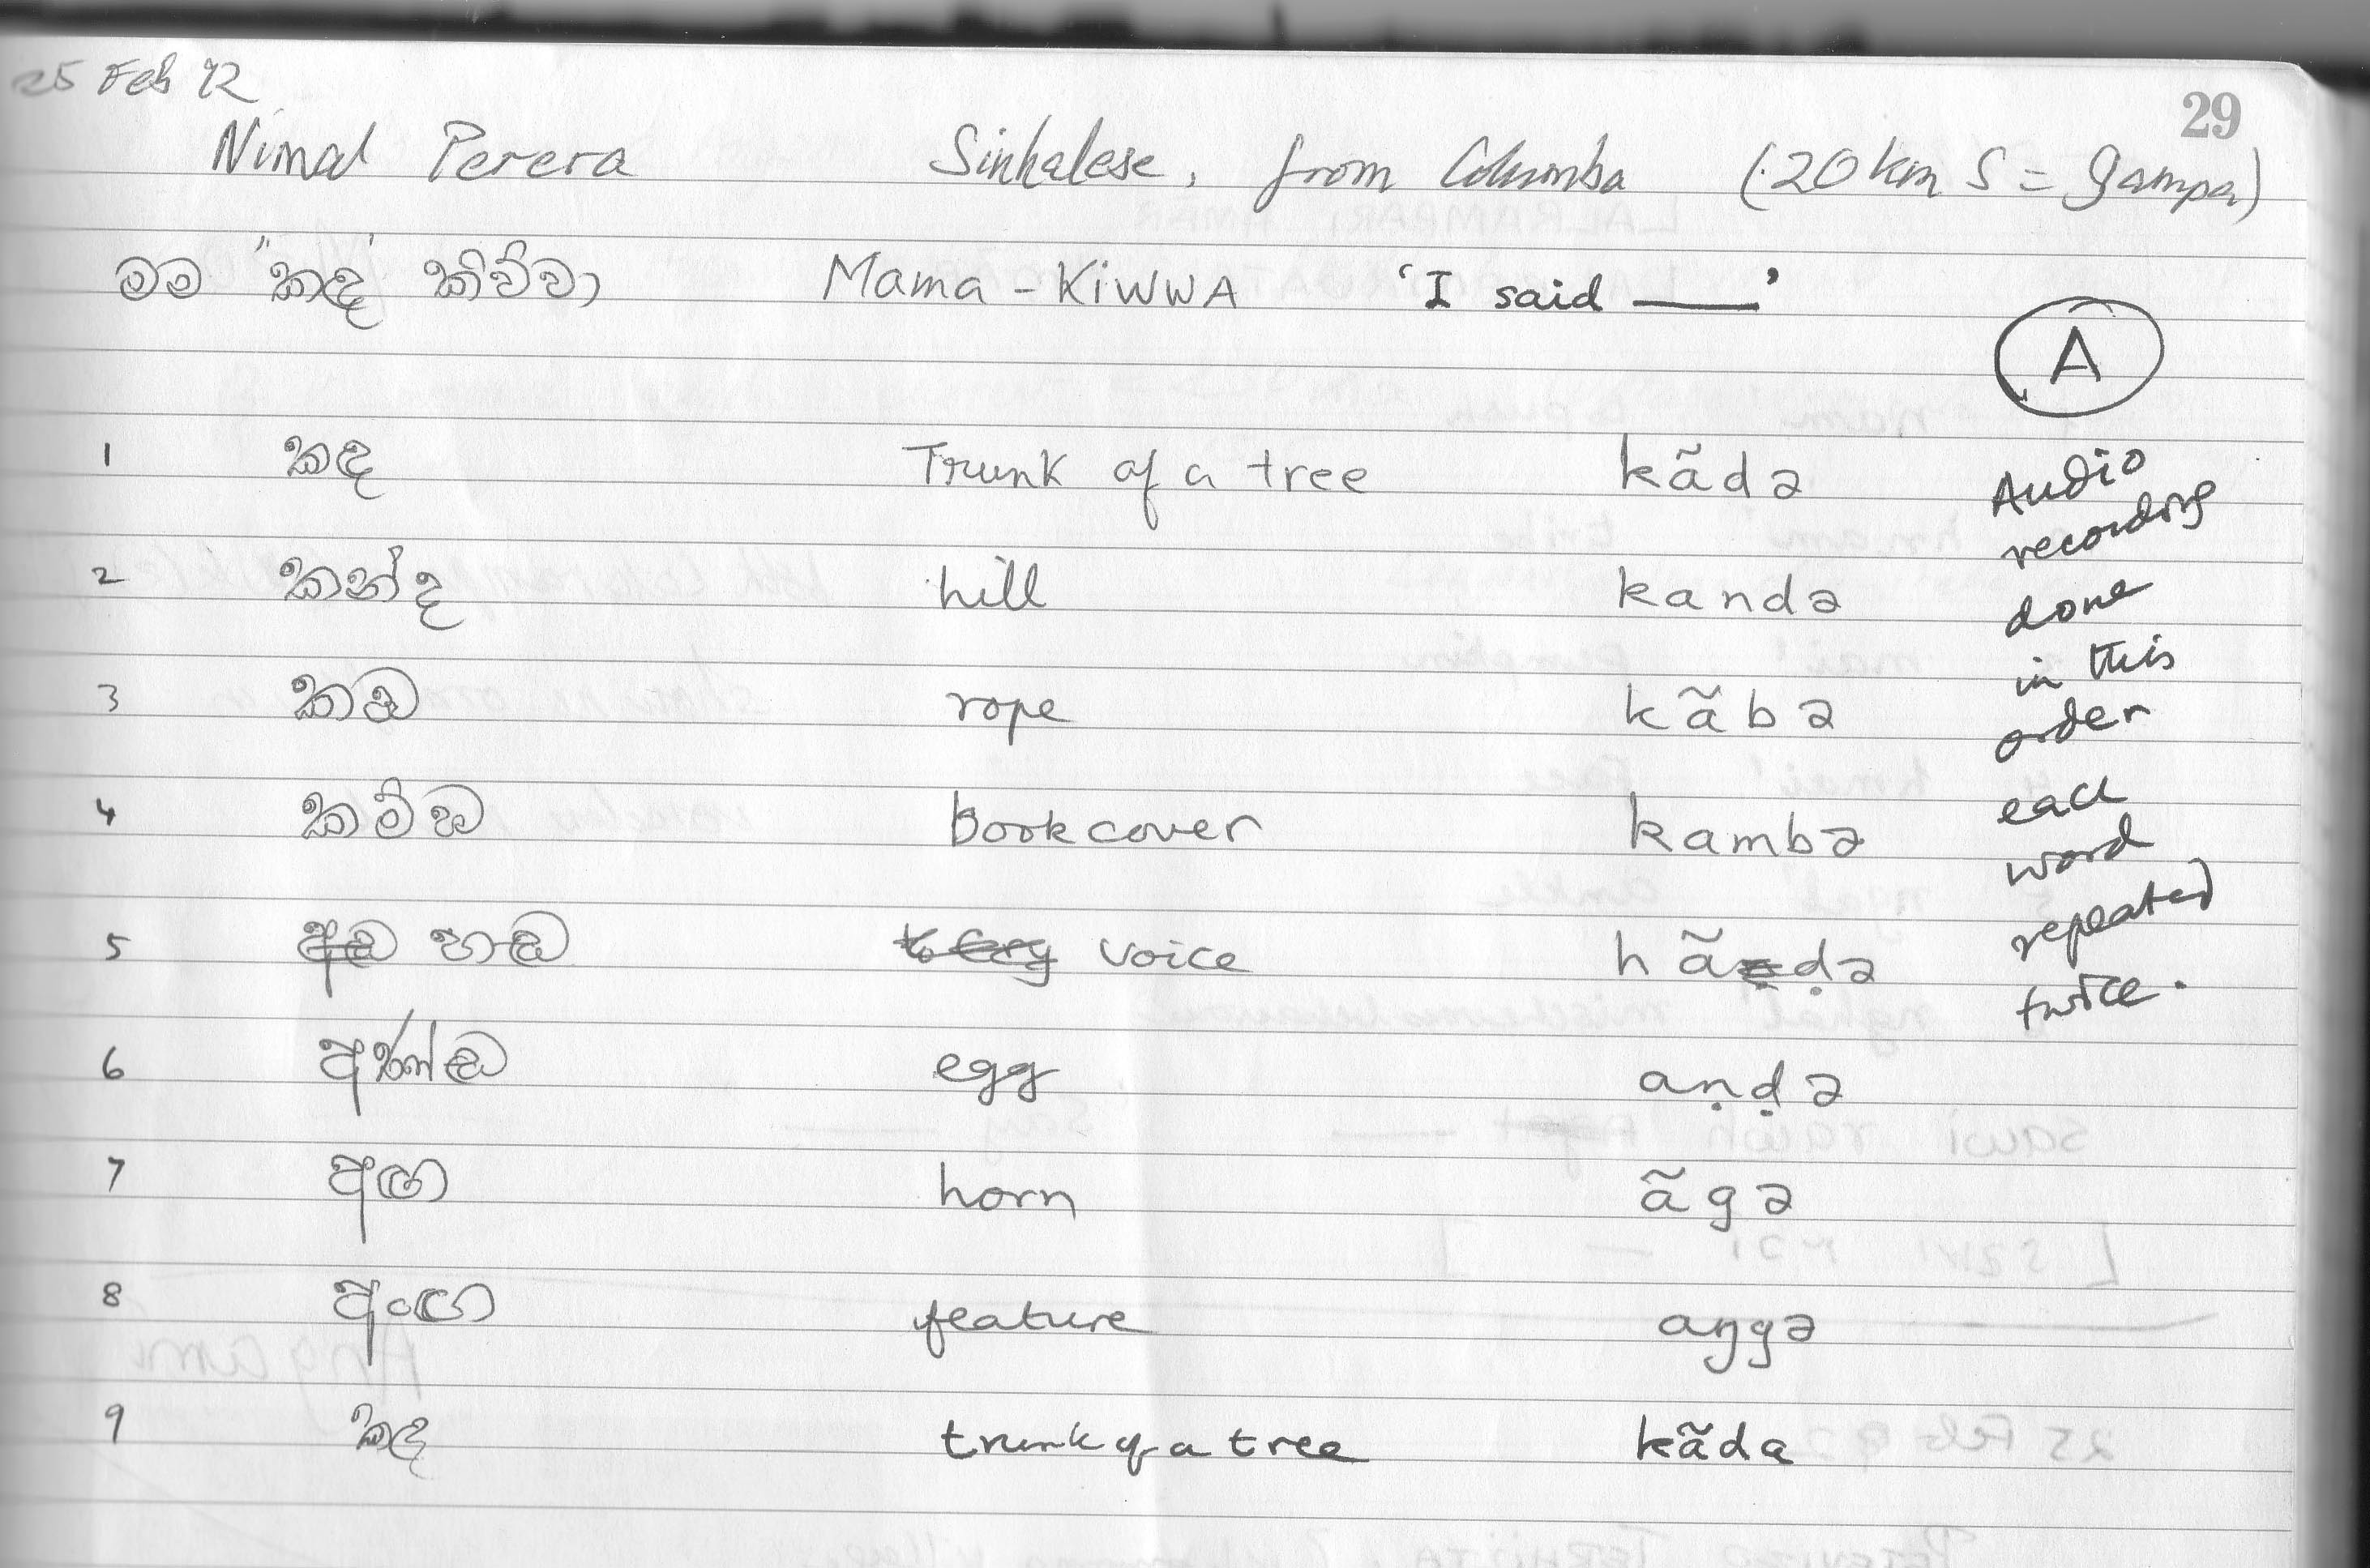 25 Feb 92
29
Nimal Perera Sinhalese, from Columba (20 km S = gampa)
මම "කඳ" කිව්වා Mama - KIWWA 'I said ——'
A
1 කඳ Trunk of a tree kãdə
2 කන්ද hill kandə
3 කඹ rope kãbə
4 කම්බ book cover kambə
5 හඬ voice hãḍə
6 අණ්ඩ egg aṇḍə
7 අඟ horn ãgə
8 අංග feature aŋgə
9 කඳ trunk of a tree kãdə
Audio
recording
done
in this
order
each
word
repeated
twice.